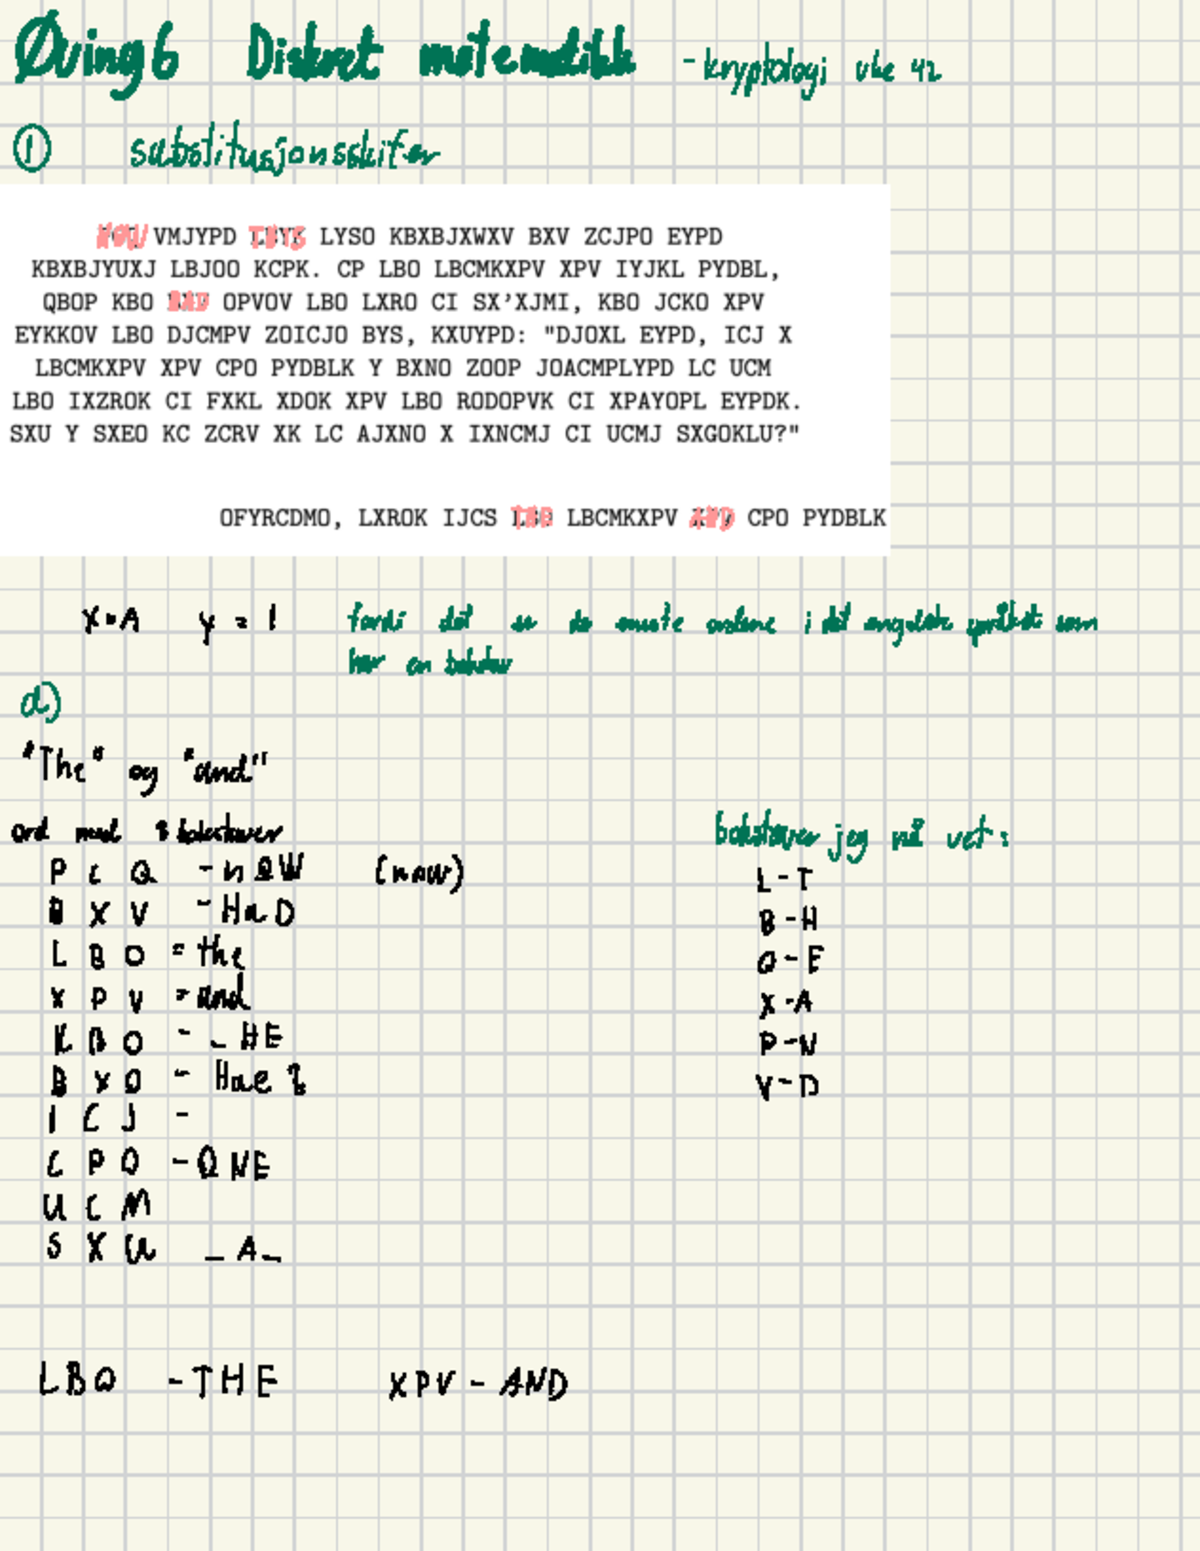 Øving 6 Diskret matematikk - kryptologi uke 42
① substitusjonsskifer
NOW VMJYPD THIS LYSO KBXBJXWXV BXV ZCJPO EYPD
KBXBJYUXJ LBJOO KCPK. CP LBO LBCMKXPV XPV IYJKL PYDBL,
QBOP KBO HAD OPVOV LBO LXRO CI SX'XJMI, KBO JCKO XPV
EYKKOV LBO DJCMPV ZOICJO BYS, KXUYPD: "DJOXL EYPD, ICJ X
LBCMKXPV XPV CPO PYDBLK Y BXNO ZOOP JOACMPLYPD LC UCM
LBO IXZROK CI FXKL XDOK XPV LBO RODOPVK CI XPAYOPL EYPDK.
SXU Y SXEO KC ZCRV XK LC AJXNO X IXNCMJ CI UCMJ SXGOKLU?"
OFYRCDMO, LXROK IJCS THE LBCMKXPV AND CPO PYDBLK
X=A y = I fordi det er de eneste ordene i det engelske språket som
har en bokstav
a)
"The" og "and"
ord med 3 bokstaver
bokstaver jeg nå vet:
P C Q - nOW (now)
L - T
B X V - HaD
B - H
L B O = the
O - E
X P V = and
X - A
K B O - _ HE
P - N
B X O - Hae ?
V - D
I C J -
C P O - ONE
U C M
S X U _ A _
LBO - THE XPV - AND